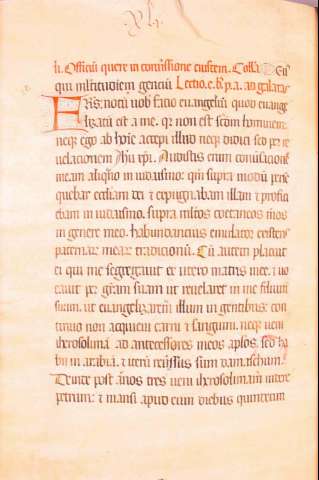 li. Officiũ quere in conũssione eiusdem. Collā. DEUS
qui mltitudinem genciũ Lectio. e. b. p. a. ad galatas
FRS: notũ vob facio euangeliũ quod euange
lizatũ est a me. qz non est scdm hominem.
neqz ego ab hoĩe accepi illud neqz didici sed per re
uelacionem Jhũ xpi. Audistis enim conuersacionē
meam aliqñdo in iudaismo: qm supra modũ perse
quebar eccliam dei & expugnabam illam & profici
ebam in iudaismo. supra mltos coetaneos meos
in genere meo. habundancius emulator existens
paternarũ mearũ tradicionũ. Cũ autem placuit
ei qui me segregauit ex utero matris mee. & uo
cauit per grãm suam ut reuelaret in me filium
suum. ut euangelizarem illum in gentibus: con
tinuo non acquieui carni & sanguini. neqz ueni
iherosolimã ad antecessores meos aplos. sed ha
bii in arabiã. & iterũ reuersus sum damascum.
Deinde post ãnos tres ueni iherosolimam uidere
petrum: & mansi apud eum diebus quindecim